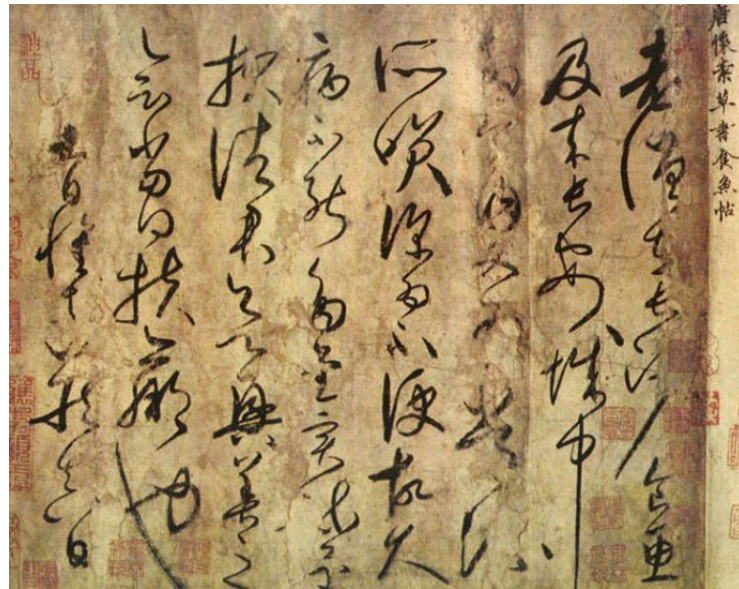 唐懷素草書食魚帖
老僧在長沙食魚
及來長安城中
多食肉又為常流
所笑深為不便故久
病不能多書實疎還
報諸君欲興善之
會當得扶羸也
九日懷素藏真白
神品